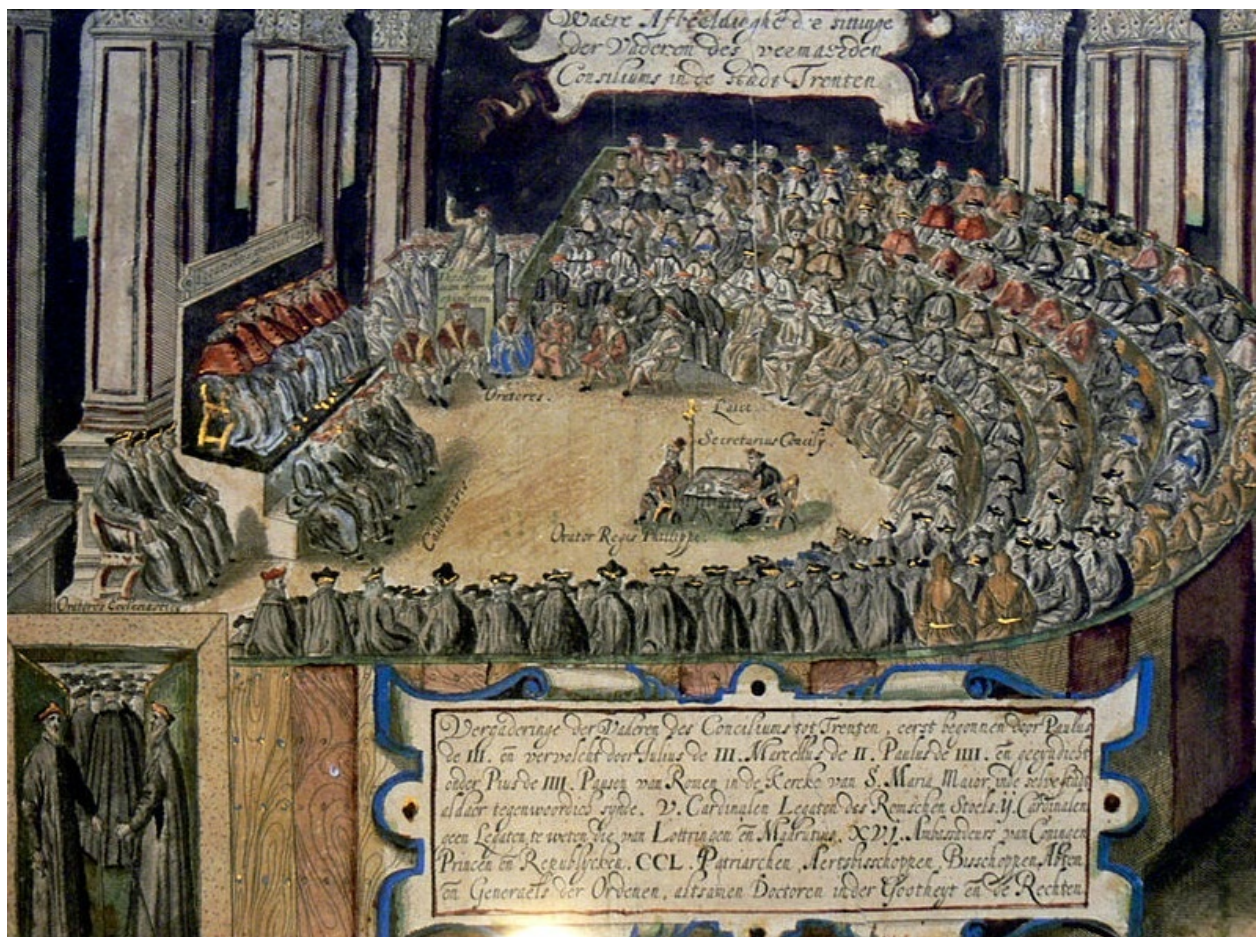 Waere Afbeeldinghe de sittinge
der Vaderen des vermaerden
Consiliums in de Stadt Trenten
Oratores.
Laici.
Secretarius Concilij.
Orator Regis Philippi.
Caudatarii
Oratores Ecclesiastici
Vergaderinge der Vaderen des Conciliums tot Trenten, eerst begonnen door Paulus
de III. en vervolcht door Julius de III. Marcellus de II. Paulus de IIII. en geeyndicht
onder Pius de IIII. Pausen van Romen in de Kercke van S. Maria Maior inde selve stadt
aldaer tegenwoordich synde. V. Cardinalen Legaten des Romschen Stoels. IJ. Cardinalen
geen Legaten, te weten die van Lottringen en Madrutius. XVI. Ambassadeurs van Coningen
Princen en Republijcken. CCL. Patriarchen, Aertsbisschoppen, Bisschoppen Abten
en Generaels der Ordenen, altsamen Doctoren inder Gootheyt en de Rechten.